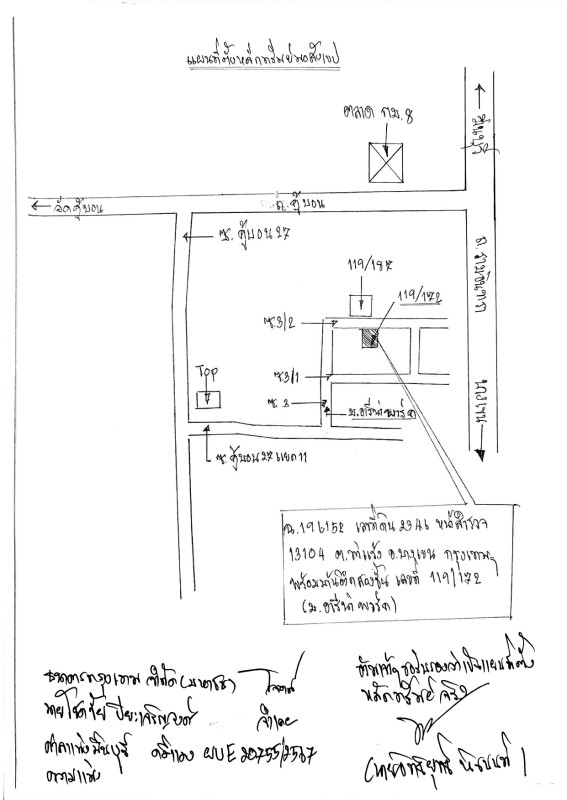 แผนที่ตั้งหลักทรัพย์พอสังเขป
ตลาด กม.8
มีนบุรี
ลัดคู้บอน
ถ.คู้บอน
ซ.คู้บอน 27
ถ.รามอินทรา
119/187
119/172
ซ.3/2
ซ.3/1
Top
ซ.3
ม.อารีน่าพาร์ค
บางเขน
ซ.คู้บอน 27 แยก 11
ฉ.196152 เลขที่ดิน 2346 หน้าสำรวจ
13104 ต.ท่าแร้ง อ.บางเขน กรุงเทพฯ
พร้อมบ้านตึกสองชั้น เลขที่ 119/172
(ม.อารีน่าพาร์ค)
ธนาคารกรุงเทพ จำกัด (มหาชน) โจทก์
นายโชคชัย ปิยะเจริญวงศ์ จำเลย
ศาลแพ่งมีนบุรี คดีแดง ผบE 20755/2567
ความแพ่ง
ข้าพเจ้าขอรับรองว่าเป็นแผนที่ตั้ง
หลักทรัพย์จริง